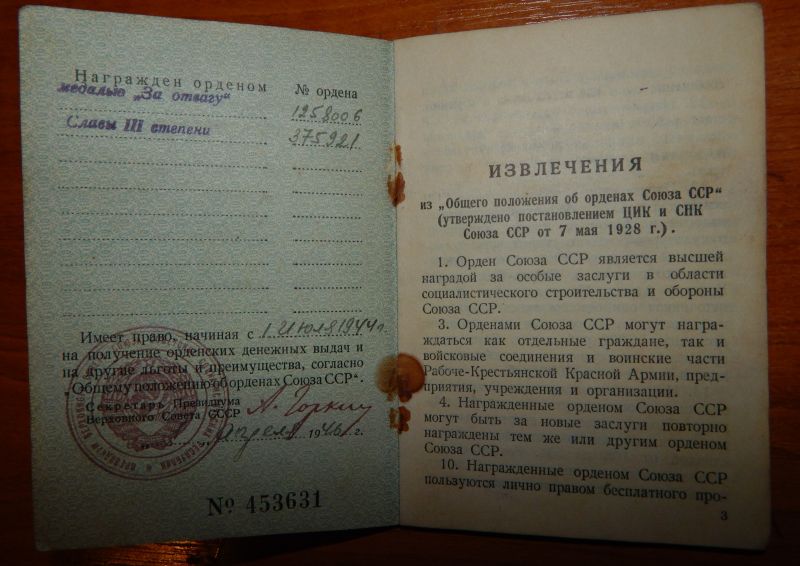 Награжден орденом
№ ордена
медалью „За отвагу“
1258006
Славы III степени
375921
Имеет право, начиная с 1 Июля 1944 г.
на получение орденских денежных выдач и
на другие льготы и преимущества, согласно
„Общему положению об орденах Союза ССР“.
Секретарь Президиума
Верховного Совета СССР
А. Горкин
апреля 1946 г.
№ 453631
ИЗВЛЕЧЕНИЯ
из „Общего положения об орденах Союза ССР“
(утверждено постановлением ЦИК и СНК
Союза ССР от 7 мая 1928 г.).
1. Орден Союза ССР является высшей
наградой за особые заслуги в области
социалистического строительства и обороны
Союза ССР.
3. Орденами Союза ССР могут награ-
ждаться как отдельные граждане, так и
войсковые соединения и воинские части
Рабоче-Крестьянской Красной Армии, пред-
приятия, учреждения и организации.
4. Награжденные орденом Союза ССР
могут быть за новые заслуги повторно
награждены тем же или другим орденом
Союза ССР.
10. Награжденные орденом Союза ССР
пользуются лично правом бесплатного про-
3